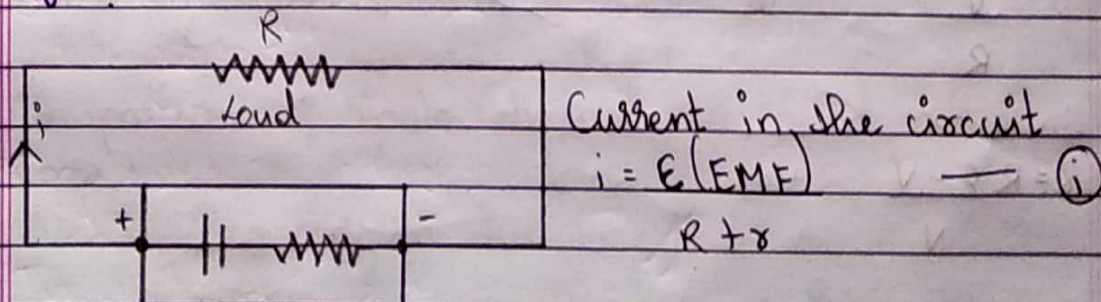 R
Load
i
Current in the circuit
i = ε(EMF) — (i)
R + r
+ -